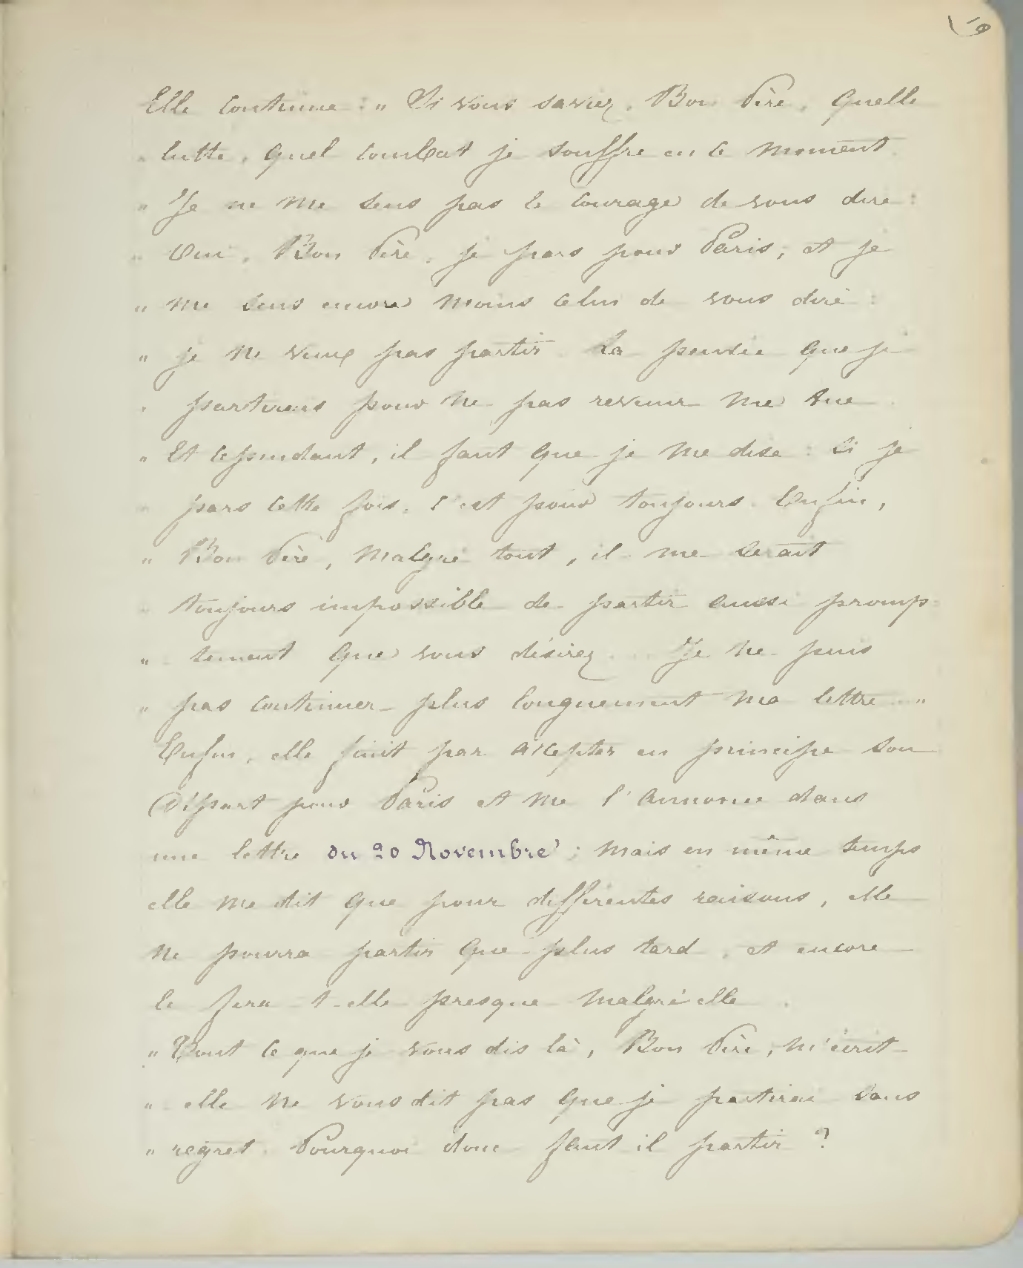 Elle continue : " Si vous saviez, Bon Père, quelle
" lutte, quel combat je souffre en ce moment.
" Je ne me sens pas le courage de vous dire :
" Oui, Bon Père, je pars pour Paris ; et je
" me sens encore moins celui de vous dire :
" je ne veux pas partir. La pensée que je
" partirais pour ne pas revenir me tue.
" Et cependant, il faut que je me dise : si je
" pars cette fois, c'est pour toujours. Enfin,
" Bon Père, malgré tout, il me serait
" toujours impossible de partir aussi promp-
" tement que vous désirez. Je ne puis
" pas continuer plus longuement ma lettre... "
Enfin, elle finit par accepter en principe son
départ pour Paris et me l'annonce dans
une lettre du 20 Novembre ; mais en même temps
elle me dit que pour différentes raisons, elle
ne pourra partir que plus tard, et encore
le fera-t-elle presque malgré elle.
" Tout ce que je vous dis là, Bon Père, m'écrit-
" elle ne vous dit pas que je partirai sans
" regret. Pourquoi donc faut il partir ?